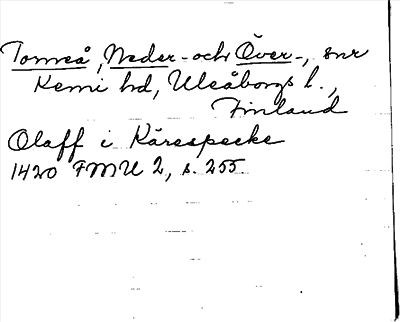 Torneå, Neder- och Över-, snr
Kemi hd, Uleåborgs l.,
Finland
Olaff i Kärespecke
1420 FMU 2, s. 255.